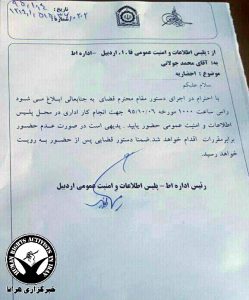 از : پلیس اطلاعات و امنیت عمومی فا.ا. اردبیل - اداره اط
به : آقای محمد جولانی
موضوع : احضاریه
سلام علیکم
با احترام در اجرای دستور مقام محترم قضائی به جنابعالی ابلاغ می شود
راس ساعت 1000 مورخه ۹۵/۱۰/۰۶ جهت انجام کار اداری در محل پلیس
اطلاعات و امنیت عمومی حضور یابید . بدیهی است در صورت عدم حضور
برابر مقررات اقدام خواهد شد. ضمنا دستور قضایی پس از حضور به رویت
خواهد رسید.
رئیس اداره اط - پلیس اطلاعات و امنیت عمومی اردبیل
HUMAN RIGHTS ACTIVISTS IN IRAN
خبرگزاری هرانا